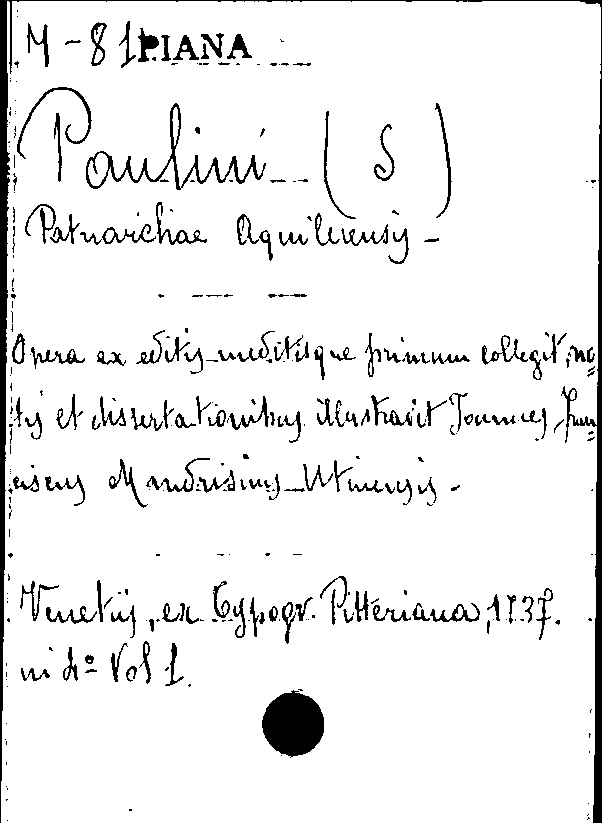 M-81 PIANA
Paulini (S)
Patriarchae Aquileiensis -
Opera ex editis ineditisque primum collegit, no=
tis et dissertationibus illustravit Joannes Fran=
ciscus Madrisius Utinensis -
Venetiis, ex Typogr. Pitteriana, 1737.
in 4º Vol 1.